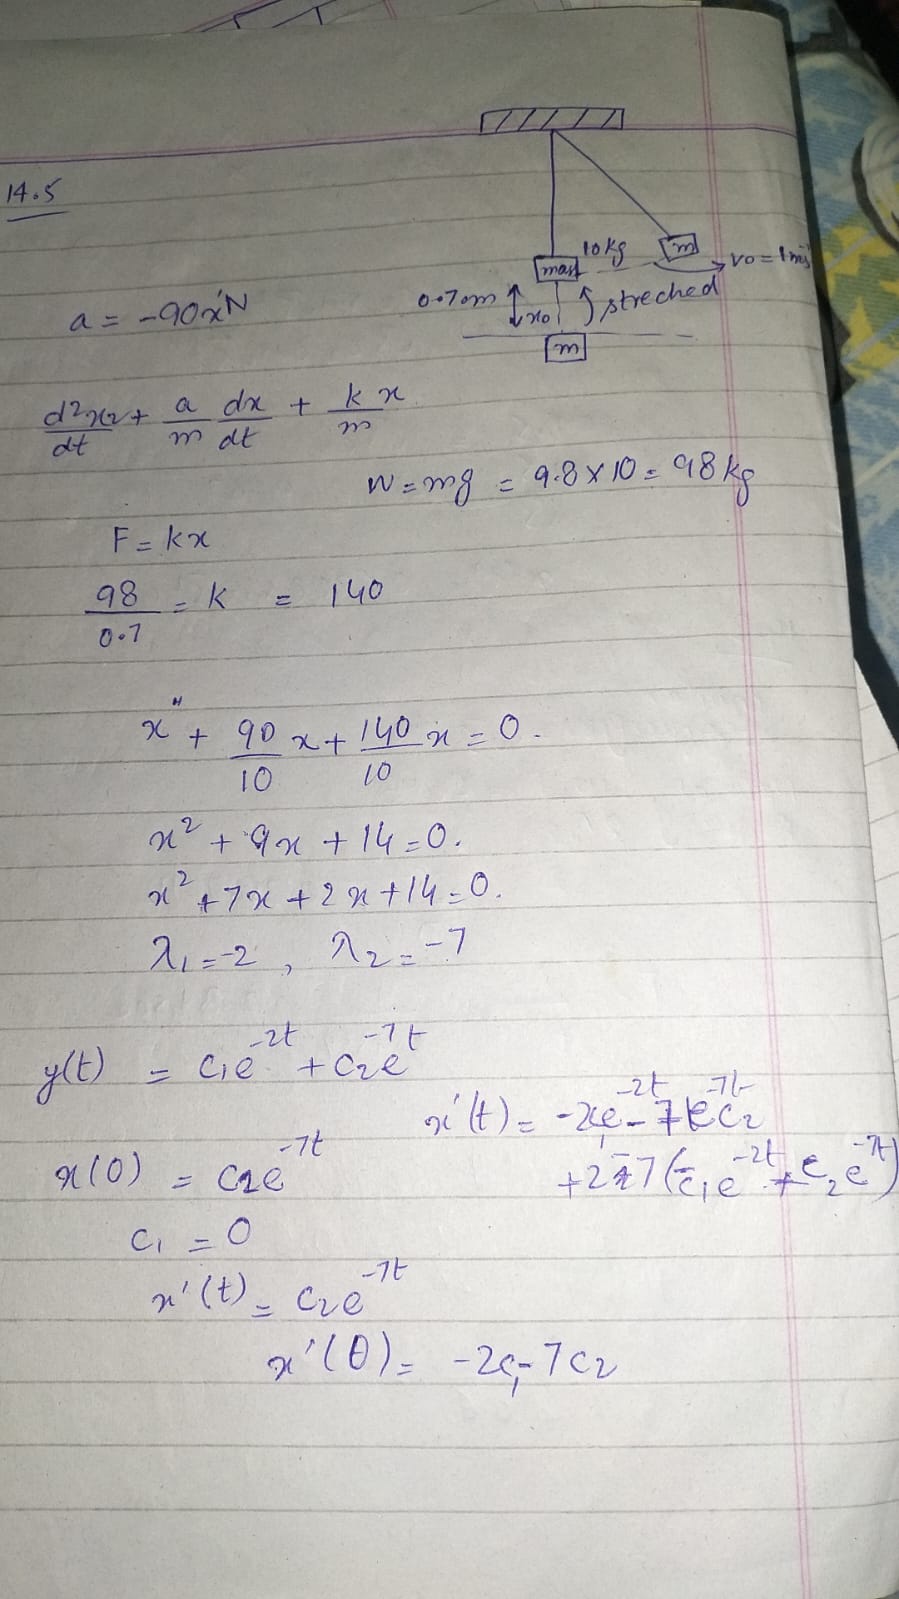 14.5
10kg
m
v₀ = 1 ms⁻¹
mass
0.70m
x₀
streched
m
a = -90x' N
d²x/dt² + a/m dx/dt + k/m x
W = mg = 9.8 × 10 = 98 kg
F = kx
98/0.7 = k = 140
x'' + 90/10 x + 140/10 x = 0.
x² + 9x + 14 = 0.
x² + 7x + 2x + 14 = 0.
λ₁ = -2 , λ₂ = -7
y(t) = c₁e^-2t + c₂e^-7t
x'(t) = -2c₁e^-2t - 7e^-7t c₂
x(0) = c₂e^-7t
c₁ = 0
x'(t) = c₂e^-7t
x'(0) = -2c₁ - 7c₂